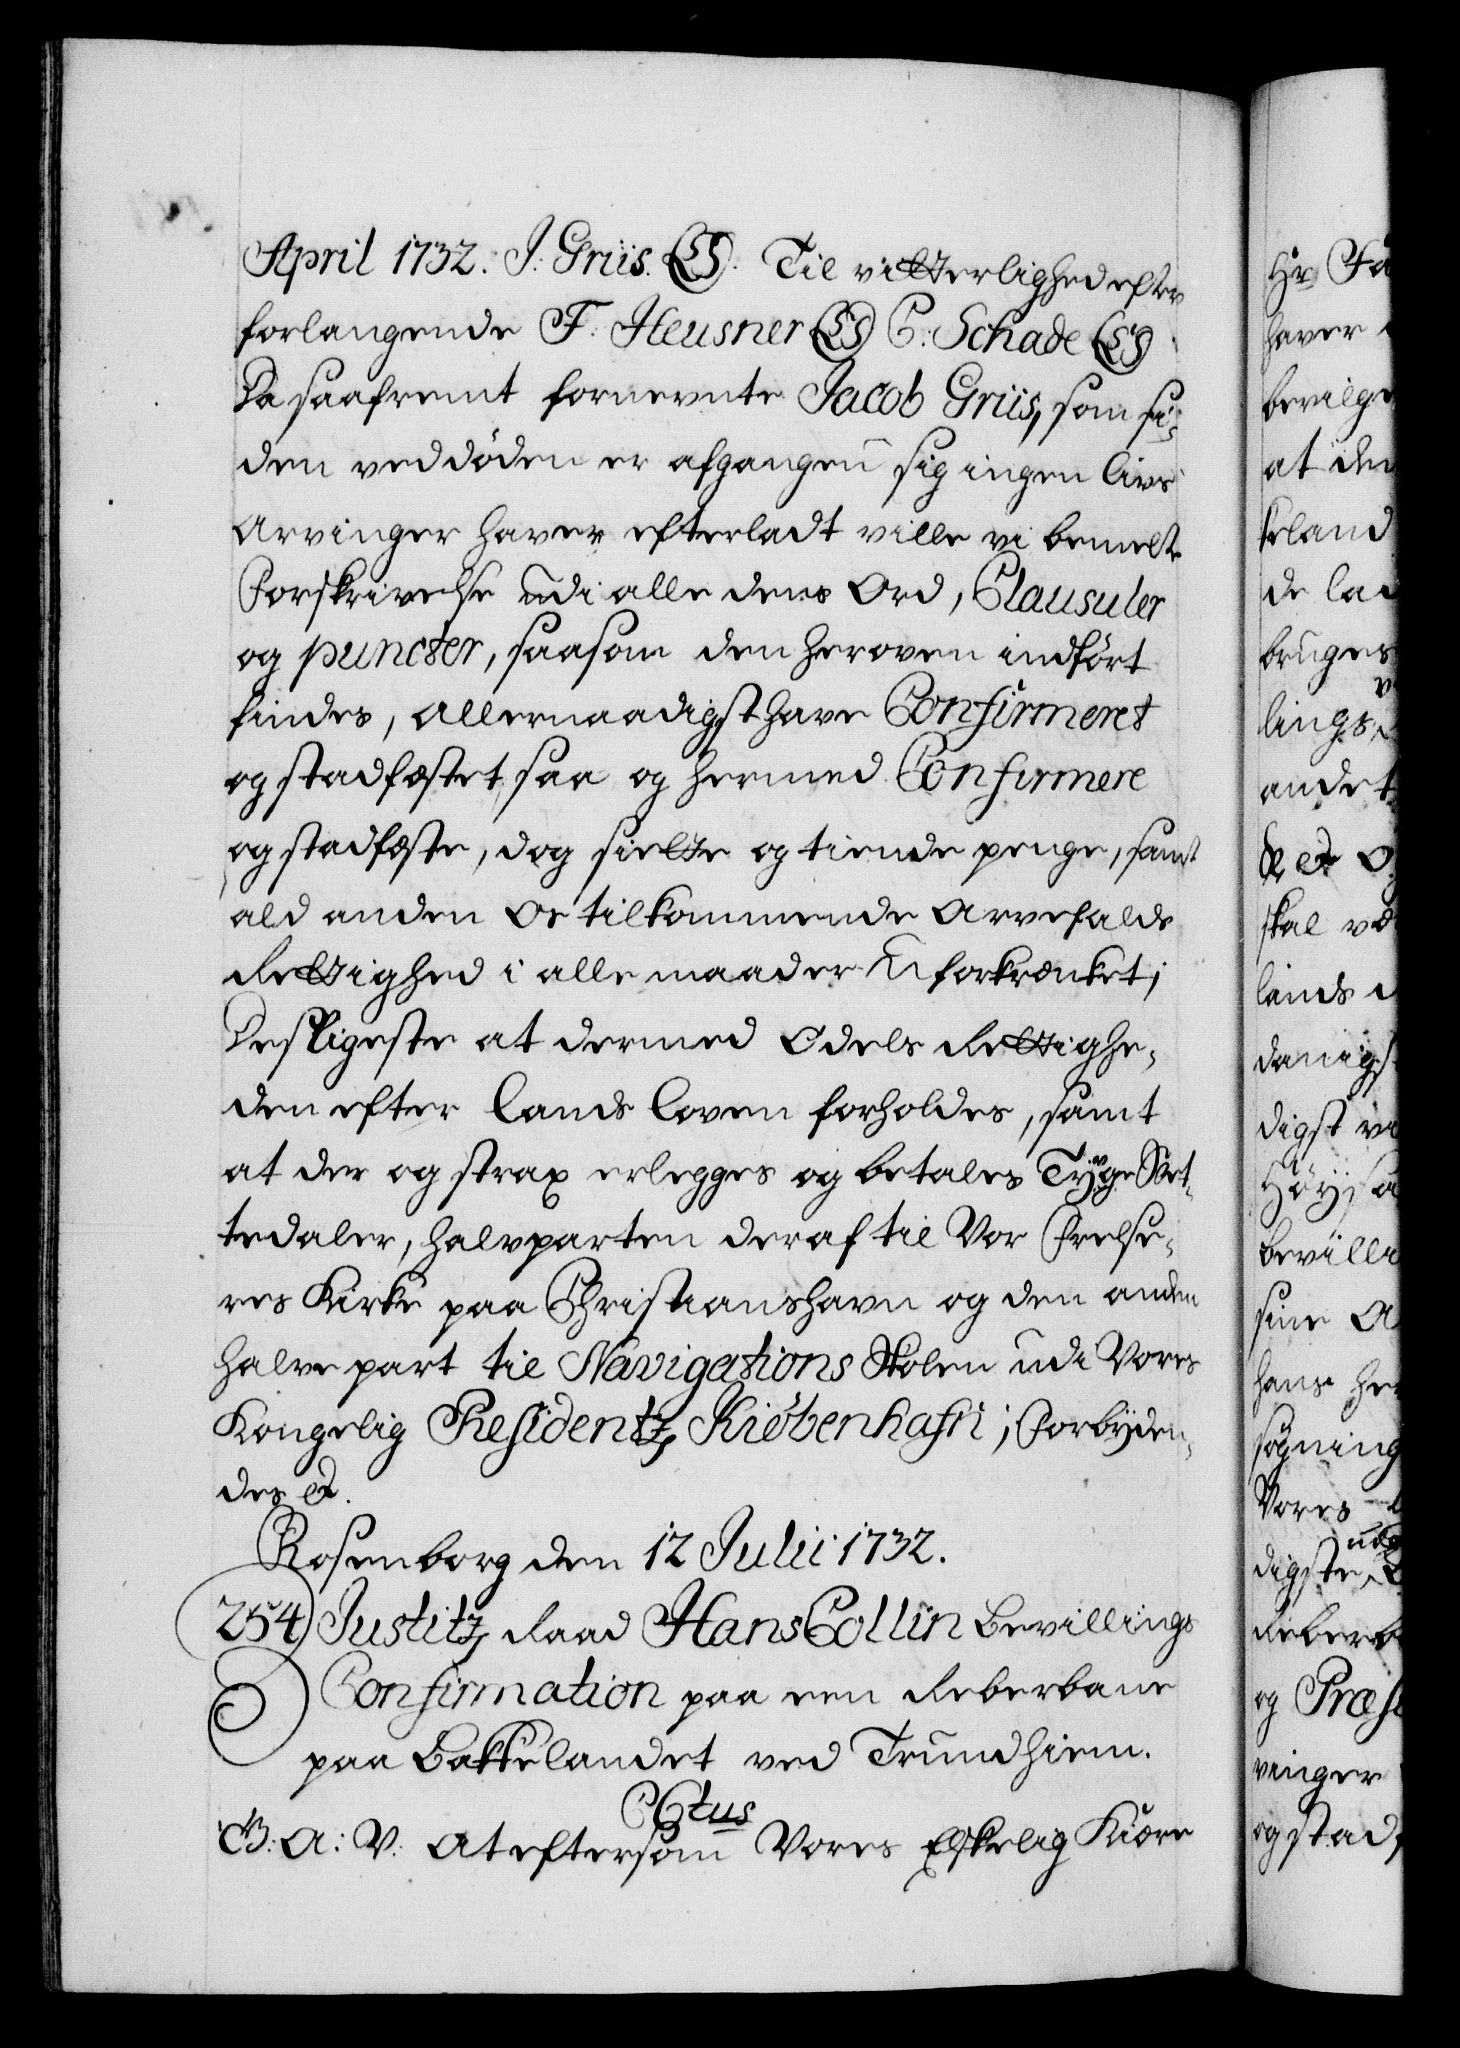 April 1732. J: Griis. (LS). Til vitterlighed efter
forlangende F. Heusner (LS) C: Schade (LS)
Da saafremt fornevnte Jacob Griis, som si-
den ved döden er afgangen sig ingen livs
Arvinger haver efterladt ville vi bemelte
Forskrivelse udi alle dens Ord, Clausuler
og puncter, saasom den heroven indfört
findes, allernaadigst have Confirmeret
og stadfæstet, saa og hermed Confirmere
og stadfæste, dog siette og tiende penge, samt
ald anden Os tilkommende Arvefalds
Rettighed i alle maader uforkrænket;
Desligeste at dermed Odels Rettighe-
den efter Lands Loven forholdes, samt
at der og strax erlegges og betales Tyve Slet-
tedaler, halvparten deraf til Vor Frelse-
res Kirke paa Christianshavn og den anden
halve part til Navigations Skolen udi Vores
Kongelig Residentz Kiöbenhafn; Forbyden-
des &.
Rosenborg den 12 Julii 1732.
254) Justitz Raad Hans Collin Bevillings
Confirmation paa een Reberbane
paa Bakkelandet ved Trundhiem.
C6tus
G: A: V: At eftersom Vores Elskelig Kiære
Hr Fa
haver
bevilge
at den
keland
de la
bruges
lings
andet
&
skal væ
lands
danigst
digst
Höysa
bevilli
sine A
hans her
sögning
Vores
digste
Reberb
og Præs
vinger
og stadf